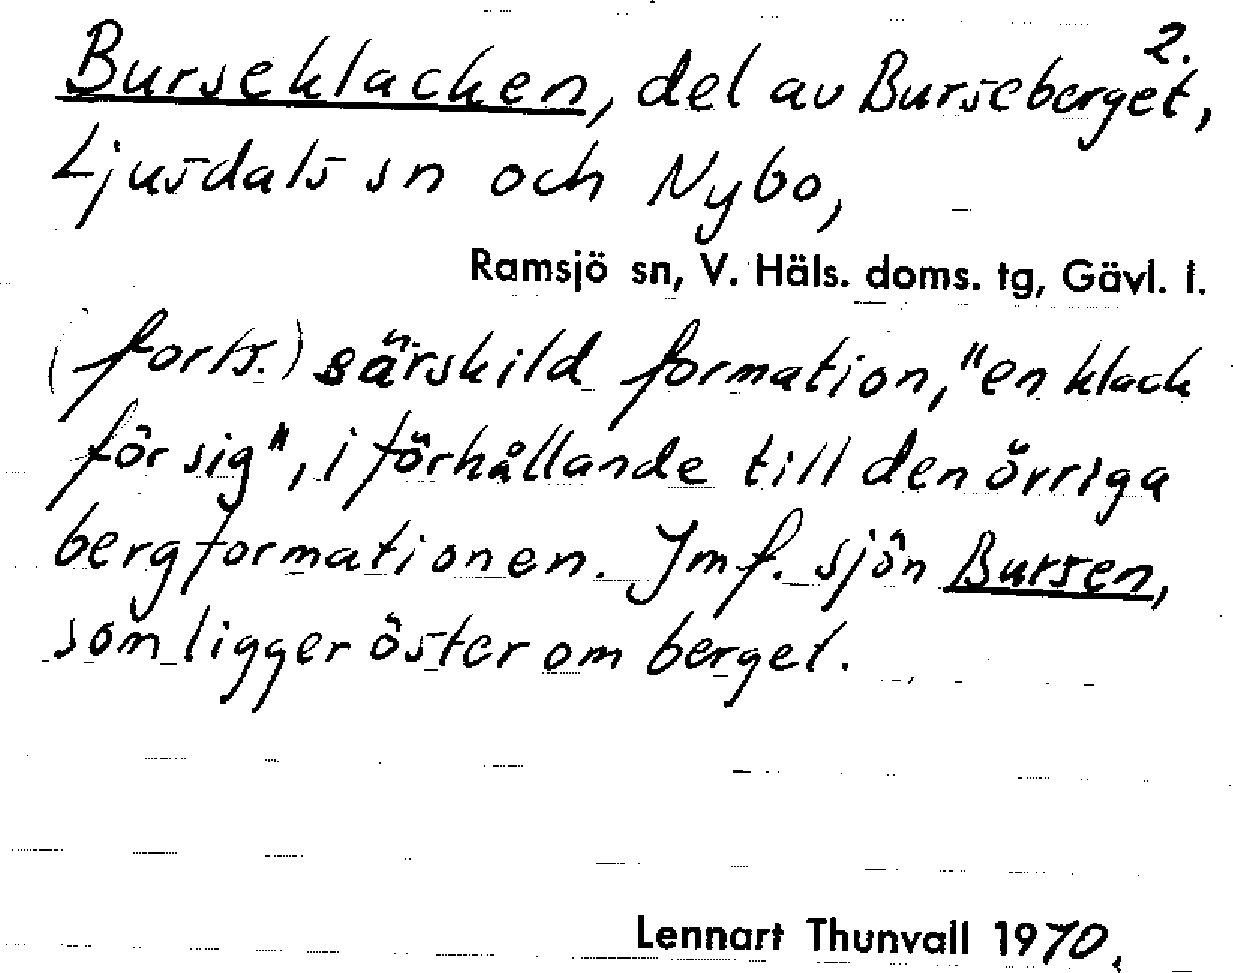 2.
Burseklacken, del av Burseberget,
Ljusdals sn och Nybo,
Ramsjö sn, V. Häls. doms. tg, Gävl. l.
(forts.) särskild formation, "en klack
för sig", i förhållande till den övriga
bergformationen. Jmf. sjön Bursen,
som ligger öster om berget.
Lennart Thunvall 1970.